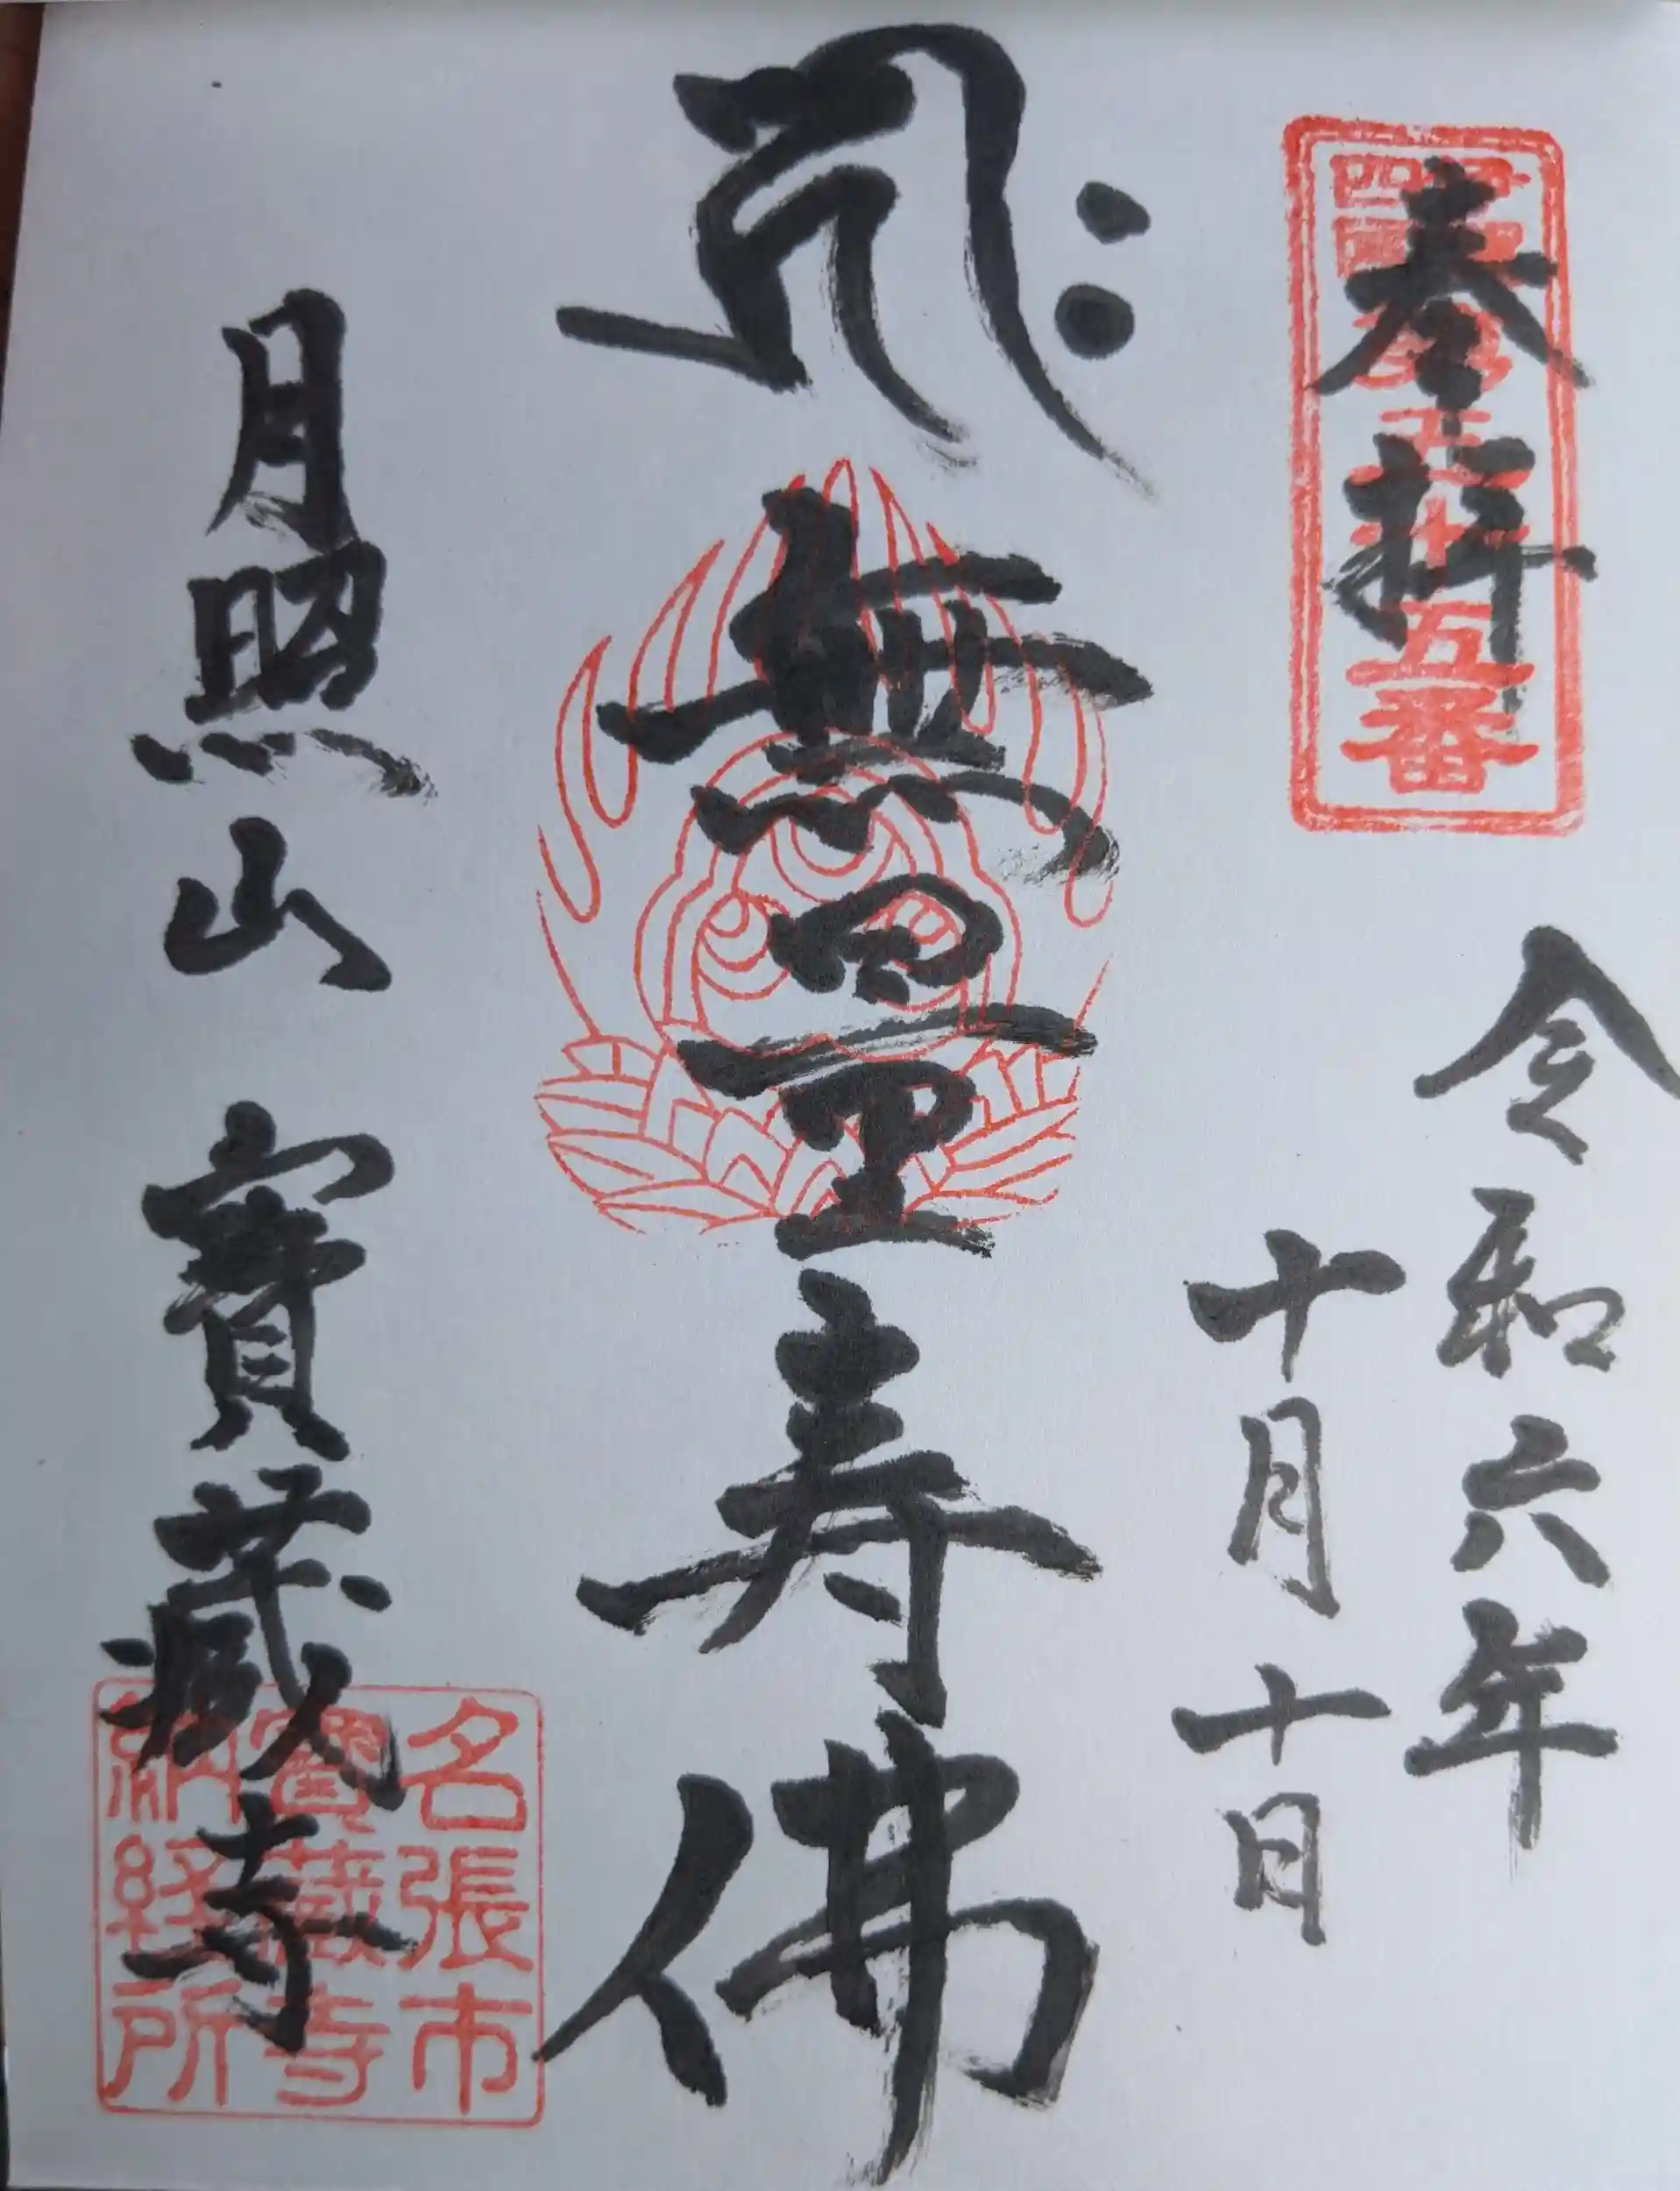 奉拝
五番
令和六年
十月十日
無量寿佛
月照山 寳蔵寺
名張市
寳蔵寺
納経所